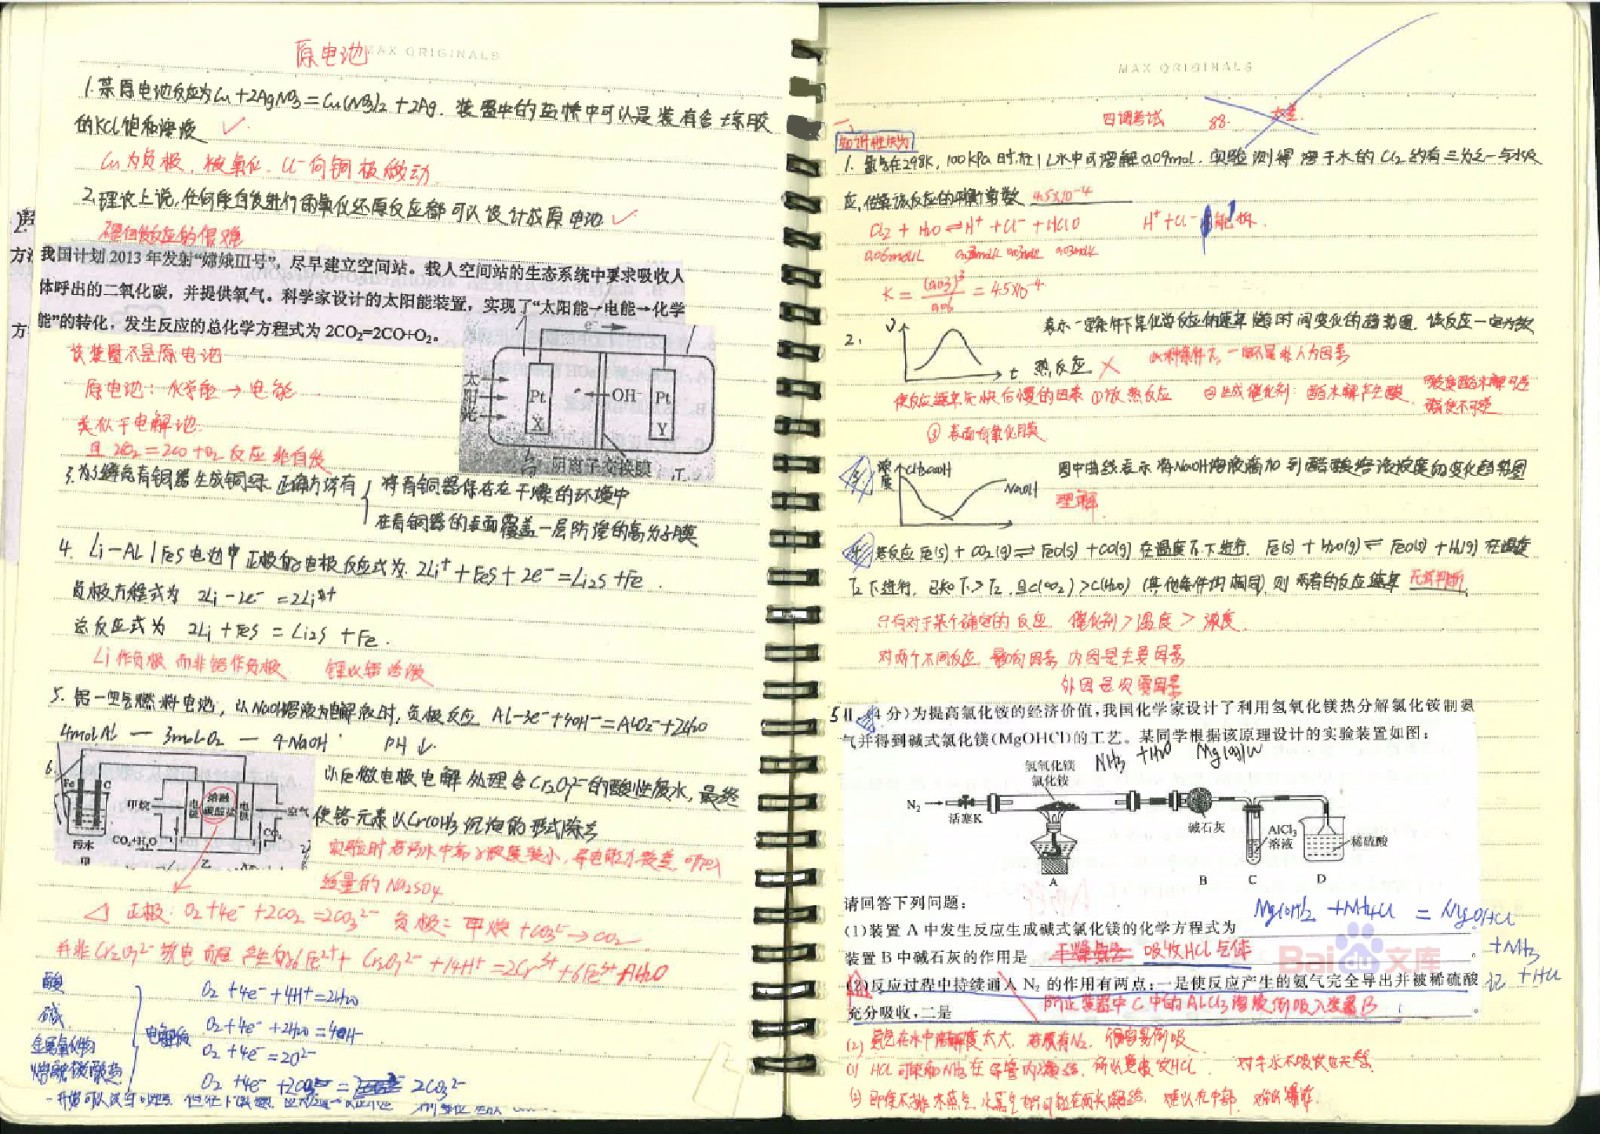 原电池
MAX ORIGINALS
1.某原电池反应为Cu+2AgNO3=Cu(NO3)2+2Ag.装置中的盐桥中可以是装有含琼胶
的KCl饱和溶液 ✓
Cu为负极,被氧化,Cl⁻向铜极做动
2.理论上说,任何能自发进行的氧化还原反应都可以设计成原电池 ✓
我国计划2013年发射“嫦娥Ⅲ号”,尽早建立空间站。载人空间站的生态系统中要求吸收人
体呼出的二氧化碳,并提供氧气。科学家设计的太阳能装置,实现了“太阳能→电能→化学
能”的转化,发生反应的总化学方程式为2CO₂=2CO+O₂。
该装置不是原电池
原电池:化学能→电能
类似于电解池
且2CO₂=2CO+O₂反应非自发
e⁻
太阳光
Pt
X
OH⁻
Pt
Y
阴离子交换膜
3.为了避免有铜器生成铜绿,正确方法有
将有铜器保存在干燥的环境中
在有铜器的表面覆盖一层防渗的高分子膜
4. Li-Al/FeS电池中正极的电极反应式为:2Li⁺+FeS+2e⁻=Li2S+Fe.
负极方程式为 2Li-2e⁻=2Li⁺
总反应式为 2Li+FeS=Li2S+Fe.
Li作负极而非铝作负极
5.铝一空气燃料电池,以NaOH溶液为电解液时,负极反应 Al-3e⁻+4OH⁻=AlO2⁻+2H2O
4molAl — 3molO2 — 4NaOH PH↓
6.
Fe
C
污水
甲
甲烷
电极
熔融碳酸盐
电极
空气
CO₂+H₂O
CO₂
乙
以Fe做电极电解处理含Cr2O7²⁻的酸性废水,最终
使铬元素以Cr(OH)3沉淀的形式除去
实验时若污水中离子浓度较小,导电能力较差,可加入
适量的Na2SO4
△ 正极:O2+4e⁻+2CO2=2CO3²⁻ 负极:甲烷+CO3²⁻→CO2
并非Cr2O7²⁻放电而是产生的6Fe²⁺+Cr2O7²⁻+14H⁺=2Cr³⁺+6Fe³⁺+7H2O
酸
碱
金属氧化物
熔融碳酸盐
电解液
O2+4e⁻+4H⁺=2H2O
O2+4e⁻+2H2O=4OH⁻
O2+4e⁻=2O²⁻
O2+4e⁻+2CO2=2CO3²⁻
MAX ORIGINALS
四调考试 88.
一、
知识性缺欠
1.氯气在298K,100kPa时,在1L水中可溶解0.09mol.实验测得溶于水的Cl2约有三分之一与水反
应,估算该反应的平衡常数 4.5×10⁻⁴
Cl2+H2O⇌H⁺+Cl⁻+HClO
0.06mol/L 0.03mol/L 0.03mol/L 0.03mol/L
K=(0.03)³/0.06=4.5×10⁻⁴
2.
υ
t
表示一定条件下某化学反应的速率随时间变化的趋势图,该反应一定为放
热反应 ×
使反应速率先快后慢的因素 ①放热反应 ②生成催化剂:酯水解产生酸
③表面有氧化膜
3.
浓度
CH3COOH
NaOH
图中曲线表示将NaOH溶液滴加到醋酸溶液浓度的变化趋势图
理解
4.若反应Fe(s)+CO2(g)⇌FeO(s)+CO(g)在温度T1下进行,Fe(s)+H2O(g)⇌FeO(s)+H2(g)在温度
T2下进行,已知T1>T2,且c(CO2)>c(H2O)(其他条件均相同)则两者的反应速率 无法判断.
只有对于某个确定的反应 催化剂>温度>浓度.
对两个不同反应,影响因素 内因是主要因素
外因是次要因素
5
Ⅱ.(4分)为提高氯化铵的经济价值,我国化学家设计了利用氢氧化镁热分解氯化铵制氨
气并得到碱式氯化镁(MgOHCl)的工艺。某同学根据该原理设计的实验装置如图:
NH3 +H2O Mg(OH)Cl
氢氧化镁
氯化铵
N₂
活塞K
碱石灰
AlCl₃
溶液
稀硫酸
A B C D
请回答下列问题:
Mg(OH)2+NH4Cl=MgOHCl
+NH3
+H2O
(1)装置A中发生反应生成碱式氯化镁的化学方程式为
装置B中碱石灰的作用是 吸收HCl气体。
Bai du 文库
(2)反应过程中持续通入N₂的作用有两点:一是使反应产生的氨气完全导出并被稀硫酸
充分吸收,二是 防止装置中C中的AlCl3溶液倒吸入装置B。
(2) 氨气在水中溶解度太大,若没有N2,很容易倒吸